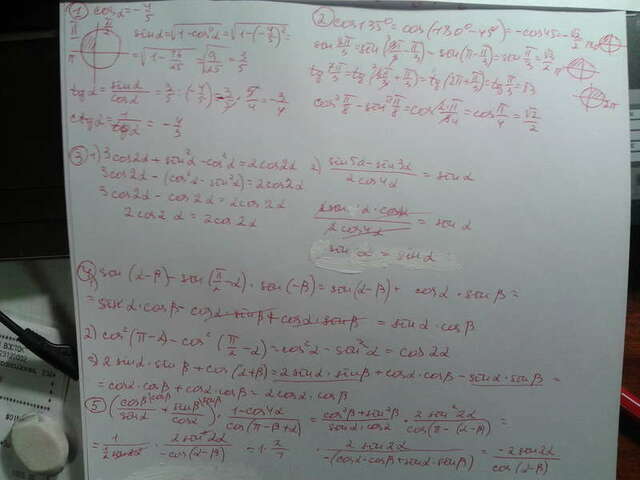 ① cosα = -4/5
π/2
π
sinα = √1-cos²α = √1-(-4/5)² =
= √1-16/25 = √9/25 = 3/5
tgα = sinα/cosα = 3/5 : (-4/5) = -3/5 · 5/4 = -3/4
ctgα = 1/tgα = -4/3
② cos135° = cos(180°-45°) = -cos45 = -√2/2
sin 2π/3 = sin(3π/3 - π/3) = sin(π-π/3) = sin π/3 = √3/2
tg 7π/3 = tg(6π/3 + π/3) = tg(2π+π/3) = tg π/3 = √3
cos² π/8 - sin² π/8 = cos 2·π/84 = cos π/4 = √2/2
2π
③ 1) 3cos2α + sin²α - cos²α = 2cos2α
3cos2α - (cos²α - sin²α) = 2cos2α
3cos2α - cos2α = 2cos2α
2cos2α = 2cos2α
2) sin5α - sin3α / 2cos4α = sinα
2sinα · cos4α / 2cos4α = sinα
sinα = sinα
④ sin(α-β) - sin(π/2-α) · sin(-β) = sin(α-β) + cosα · sinβ =
= sinα · cosβ - cosα · sinβ + cosα · sinβ = sinα · cosβ
2) cos²(π-α) - cos²(π/2-α) = cos²α - sin²α = cos2α
3) 2sinα · sinβ + cos(α+β) = 2sinα · sinβ + cosα · cosβ - sinα · sinβ =
= cosα · cosβ + cosα · cosβ = 2cosα · cosβ
⑤ (cosβ/sinα + sinβ/cosα) · 1-cos4α / cos(π-β+α) = cos²β+sin²β / sinα · cosα · 2sin²2α / cos(π-(α-β)) =
= 1 / ½sin2α · 2sin²2α / -cos(α-β) = 1 · 2/1 · 2sin2α / -(cosα·cosβ+sinα·sinβ) = -2sin2α / cos(α-β)